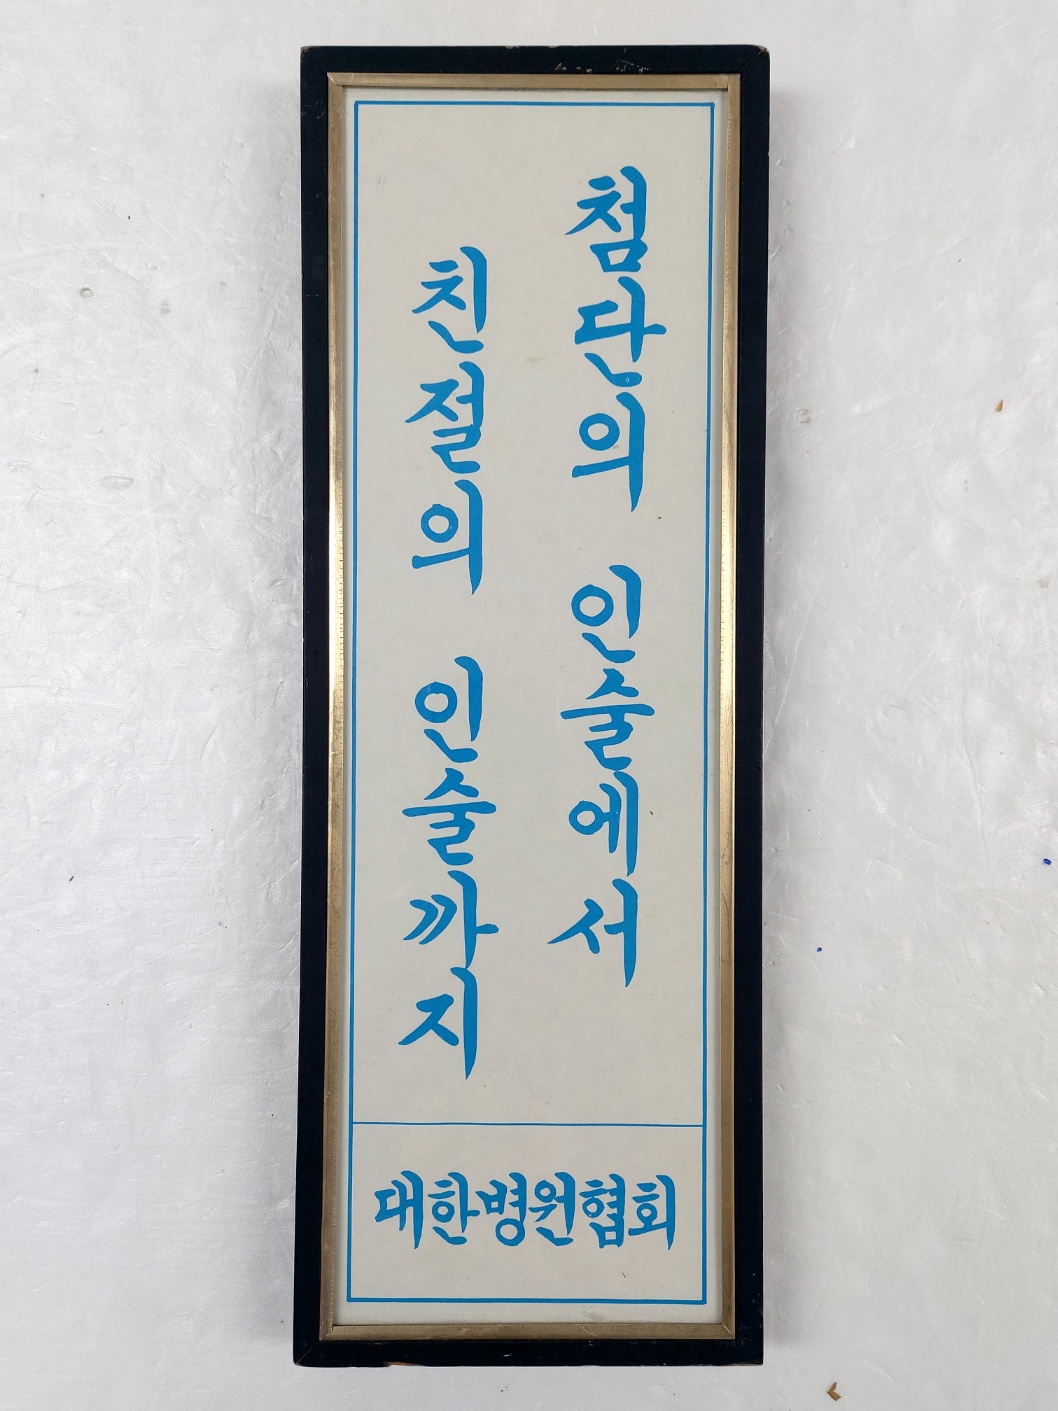 첨단의 인술에서
친절의 인술까지
대한병원협회